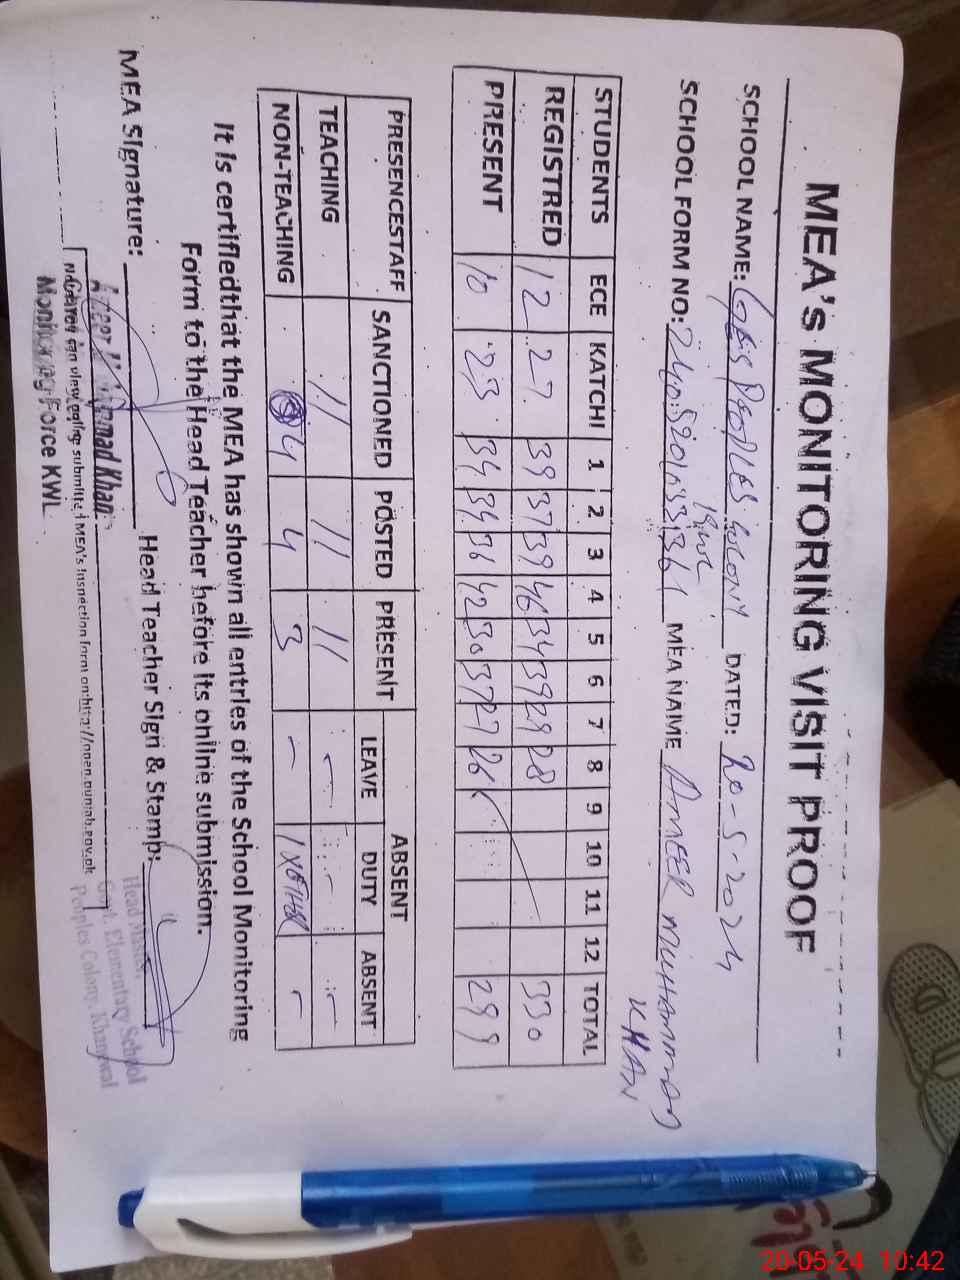 MEA'S MONITORING VISIT PROOF
SCHOOL NAME: GES PEOPLES COLONY DATED: 20-5-2024
KWL
SCHOOL FORM NO: MEA NAME AMEER MUHAMMAD
KHAN
STUDENTS ECE KATCHI 1 2 3 4 5 6 7 8 9 10 11 12 TOTAL
REGISTRED 12 27 39 37 39 46 34 39 29 28 330
PRESENT 10 23 34 34 36 42 30 37 27 26 299
PRESENCESTAFF SANCTIONED POSTED PRESENT ABSENT
LEAVE DUTY ABSENT
TEACHING 11 11 11 - - -
NON-TEACHING 4 4 3 - 1 -
It is certifiedthat the MEA has shown all entries of the School Monitoring
Form to the Head Teacher before its online submission.
MEA Signature: Head Teacher Sign & Stamp:
Head Master
Govt. Elementary School
Peoples Colony, Khanewal
Ameer Muhammad Khan
Note: You can view online submitted MEA's Inspection form on: http://open.punjab.gov.pk
Monitoring Force KWL
20-05-24 10:42